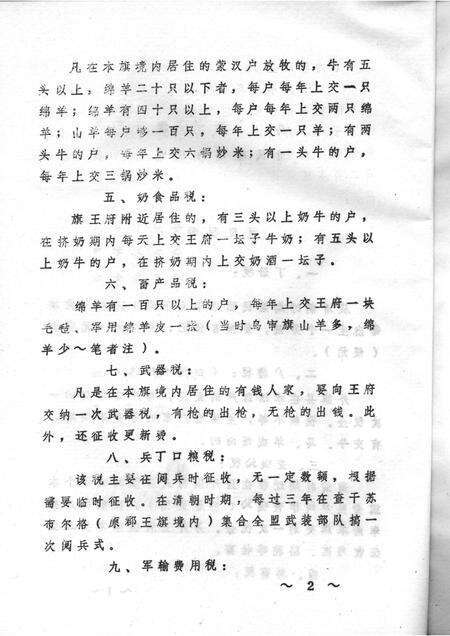 凡在本旗境内居住的蒙汉户放牧的，牛有五
头以上；绵羊二十只以下者，每户每年上交一只
绵羊；绵羊有四十只以上，每户每年上交两只绵
羊；山羊每户够一百只，每年上交一只羊；有两
头牛的户，每年上交六锅炒米；有一头牛的户，
每年上交三锅炒米。
五、奶食品税：
旗王府附近居住的，有三头以上奶牛的户，
在挤奶期内每天上交王府一坛子牛奶；有五头以
上奶牛的户，在挤奶期内上交奶酒一坛子。
六、畜产品税：
绵羊有一百只以上的户，每年上交王府一块
毛毡、军用绵羊皮一张（当时乌审旗山羊多，绵
羊少～笔者注）。
七、武器税：
凡是在本旗境内居住的有钱人家，要向王府
交纳一次武器税，有枪的出枪，无枪的出钱。此
外，还征收更新费。
八、兵丁口粮税：
该税主要在阅兵时征收，无一定数额，根据
需要临时征收。在清朝时期，每过三年在查干苏
布尔格（原郡王旗境内）集合全盟武装部队搞一
次阅兵式。
九、军输费用税：
～2～